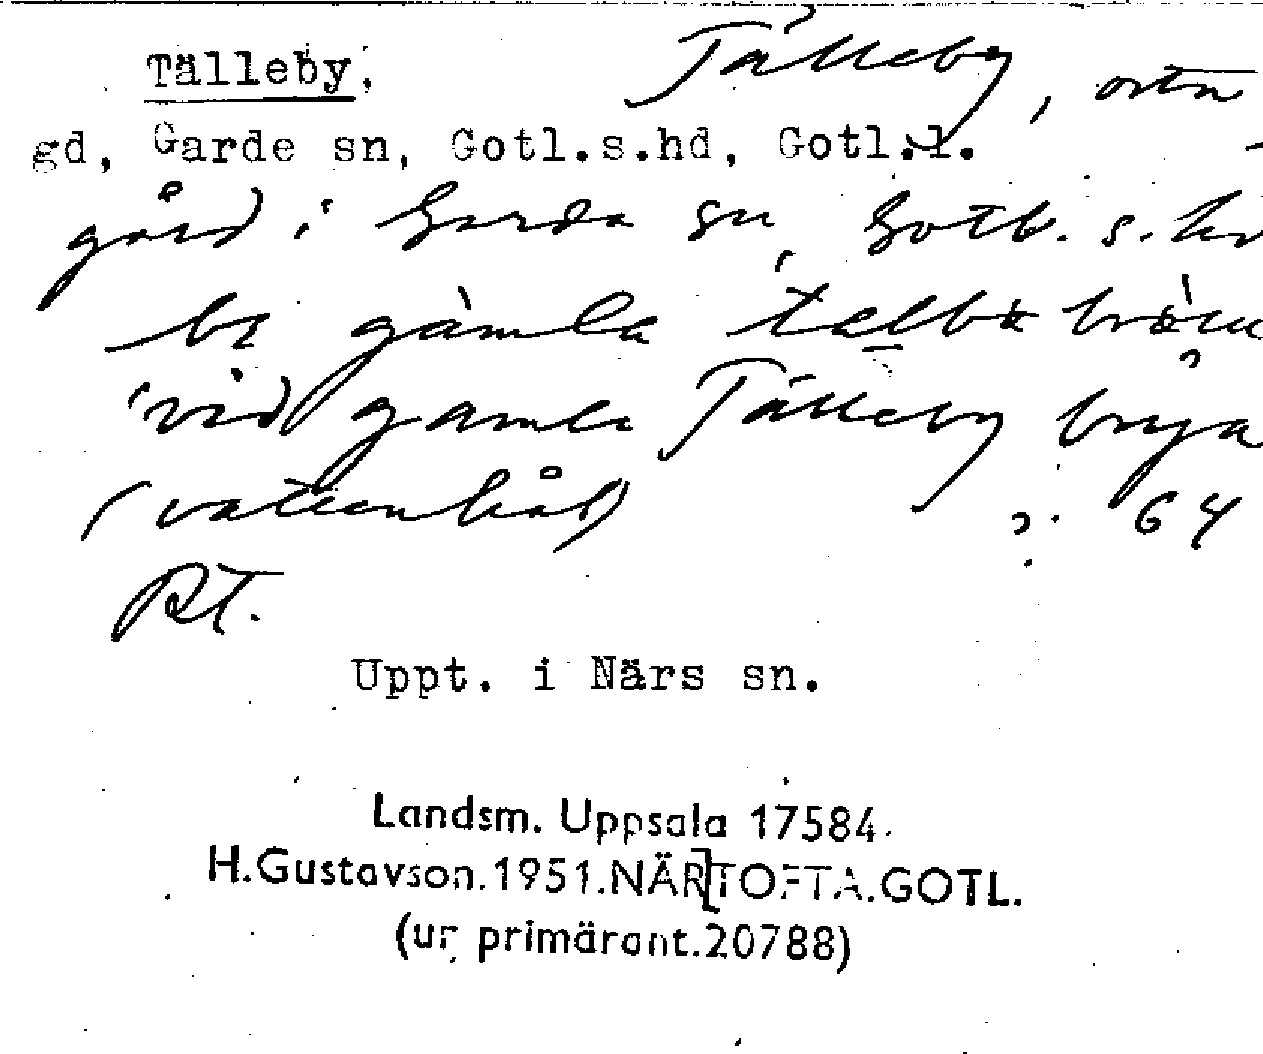 Tälleby, Tälleby, ortn
gd, Garde sn, Gotl.s.hd, Gotl.l.
gård i Garda sn, Gotl. s. hd
be gàmla
vid gamla Tälleby brya
(vattenhål) 2. 64
RT.
Uppt. i Närs sn.
Landsm. Uppsala 17584.
H.Gustavson.1951.NÄR[TOFTA.GOTL.
(ur primärant.20788)